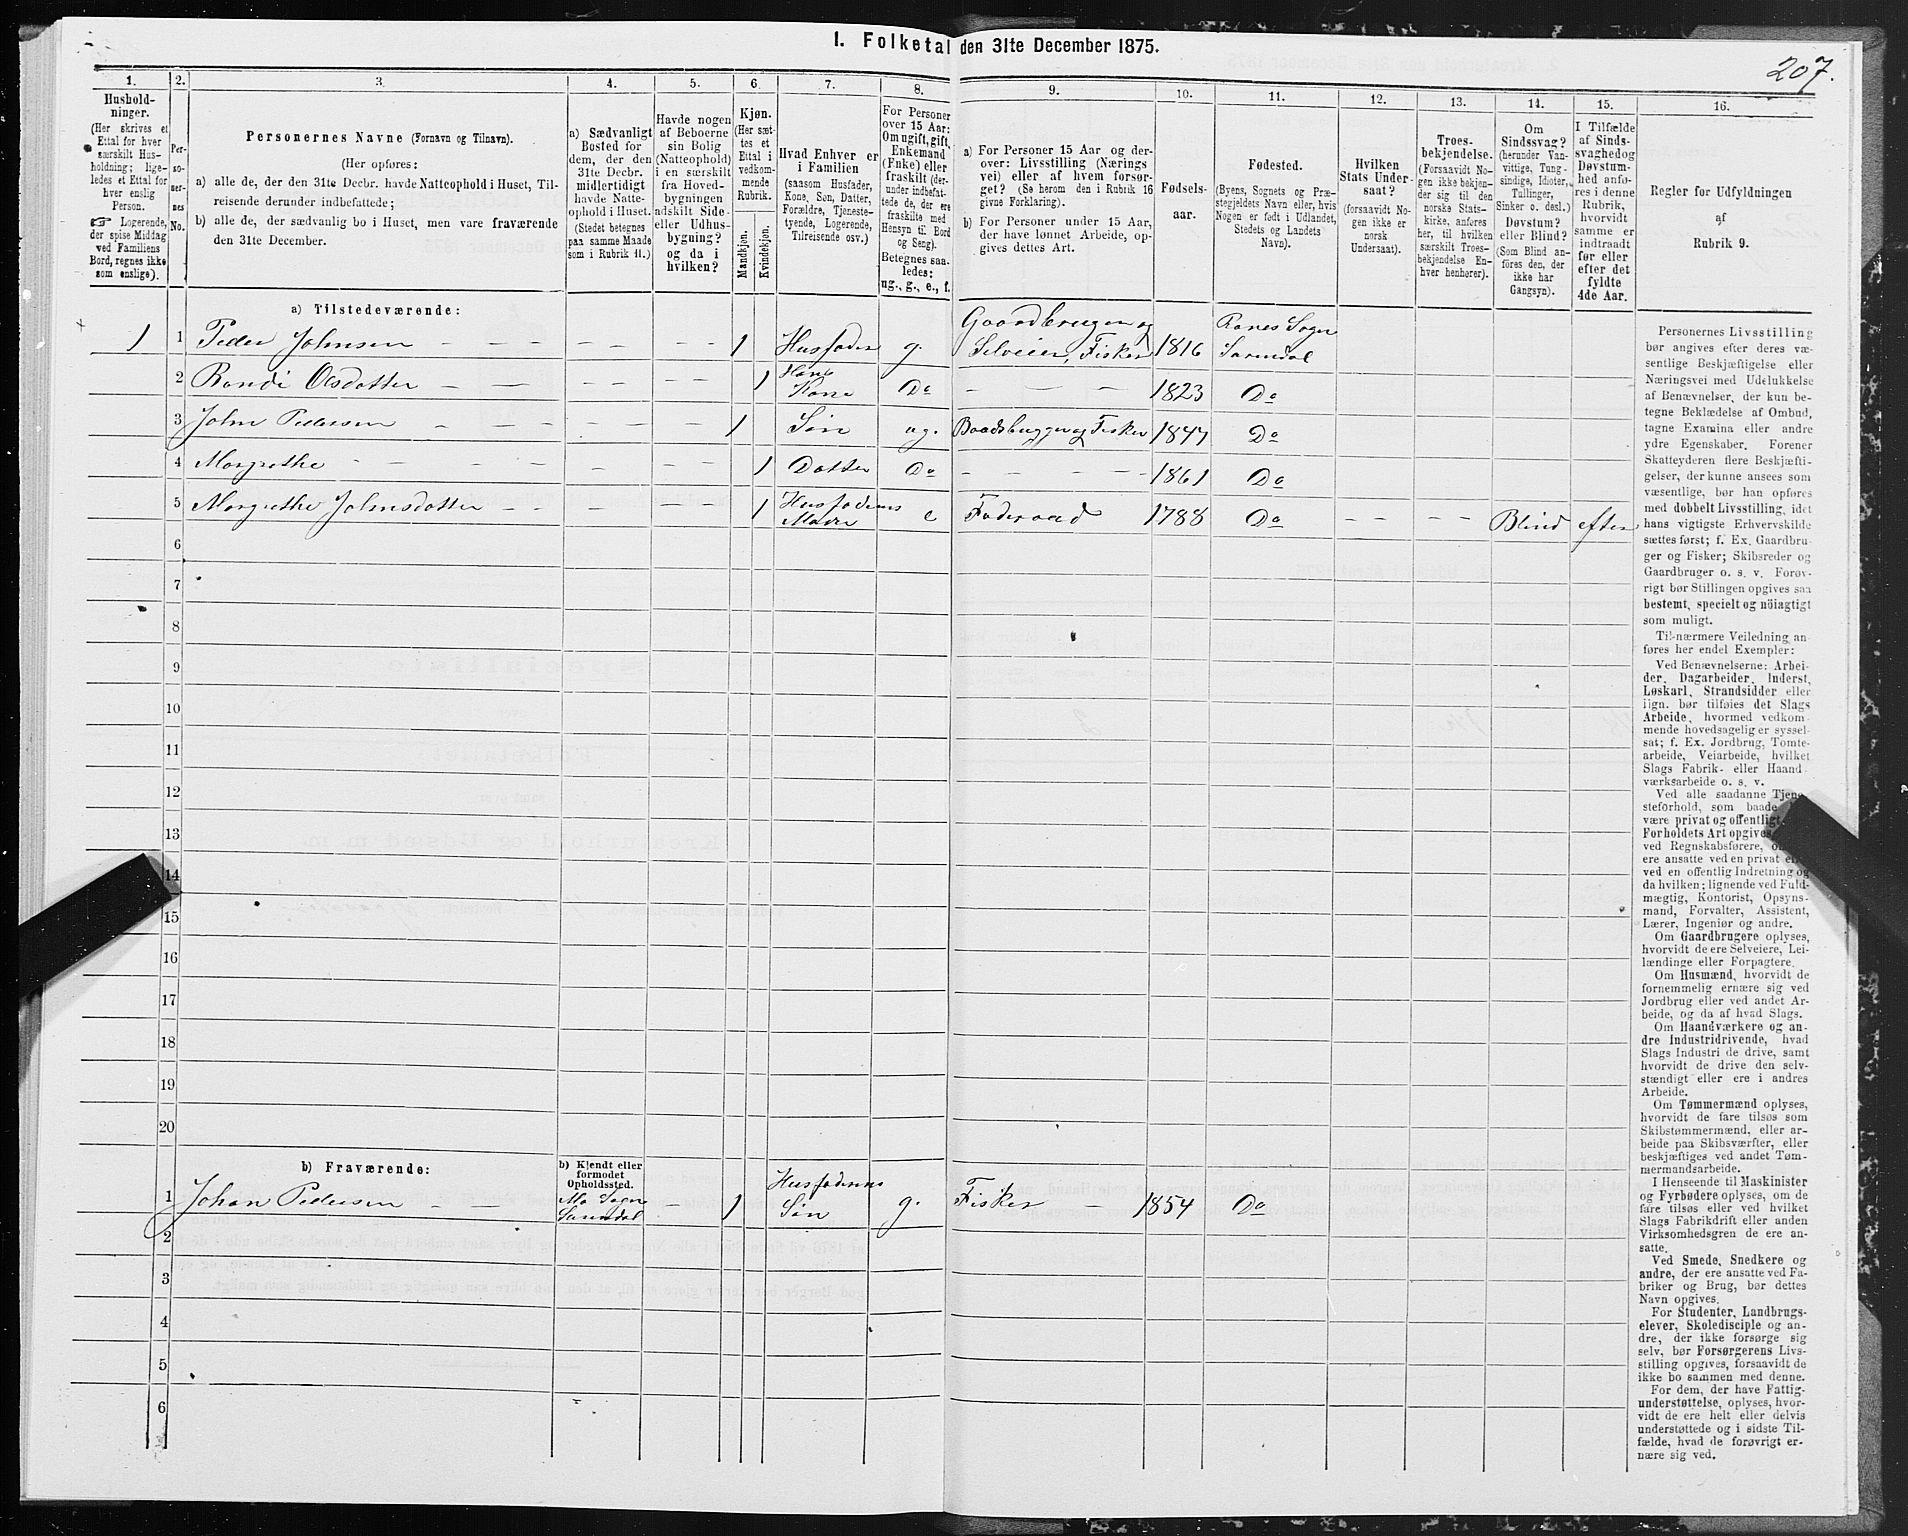 I. Folketal den 31te December 1875.
207.
1.
2.
3.
4.
5.
6.
7.
8.
9.
10.
11.
12.
13.
14.
15.
16.
Hushold-
ninger.
(Her skrives et
Ettal for hver
særskilt Hus-
holdning; lige-
ledes et Ettal for
hver enslig
Person.
☞ Logerende,
der spise Middag
ved Familiens
Bord, regnes ikke
som enslige).
Per-
so-
ner-
nes
No.
Personernes Navne (Fornavn og Tilnavn).
(Her opføres:
a) alle de, der den 31te Decbr. havde Natteophold i Huset, Til-
reisende derunder indbefattede;
b) alle de, der sædvanlig bo i Huset, men vare fraværende
den 31te December.
a) Sædvanligt
Bosted for
dem, der den
31te Decbr.
midlertidigt
havde Natte-
ophold i Huset.
(Stedet betegnes
paa samme Maade
som i Rubrik 11.)
Havde nogen
af Beboerne
sin Bolig
(Natteophold)
i en særskilt
fra Hoved-
bygningen
adskilt Side-
eller Udhus-
bygning?
og da i
hvilken?
Kjøn.
(Her sæt-
tes et
Ettal i
vedkom-
mende
Rubrik.
Mandkjøn.
Kvindekjøn.
Hvad Enhver er
i Familien
(saasom Husfader,
Kone, Søn, Datter,
Forældre, Tjeneste-
tyende, Logerende,
Tilreisende osv.)
For Personer
over 15 Aar:
Om ugift, gift,
Enkemand
(Enke) eller
fraskilt (der-
under indbefat-
tede de, der ere
fraskilte med
Hensyn til Bord
og Seng).
Betegnes saa-
ledes:
ug., g., e., f.
a) For Personer 15 Aar og der-
over: Livsstilling (Nærings
vei) eller af hvem forsør-
get? (Se herom den i Rubrik 16
givne Forklaring).
b) For Personer under 15 Aar,
der have lønnet Arbeide, op-
gives dettes Art.
Fødsels-
aar.
Fødested.
(Byens, Sognets og Præ-
stegjeldets Navn eller, hvis
Nogen er født i Udlandet,
Stedets og Landets
Navn).
Hvilken
Stats Under-
saat?
(forsaavidt No-
gen ikke er
norsk
Undersaat).
Troes-
bekjendelse.
(Forsaavidt No-
gen ikke bekjen-
der sig til den
norske Stats-
kirke, anføres
her, til hvilken
særskilt Troes-
bekjendelse En-
hver henhører).
Om
Sindssvag?
(herunder Van-
vittige, Tung-
sindige, Idioter,
Tullinger,
Sinker o. desl.)
Døvstum?
eller Blind?
(Som Blind an-
føres den, der
ikke har
Gangsyn).
I Tilfælde
af Sinds-
svaghed og
Døvstum-
hed anfø-
res i denne
Rubrik,
hvorvidt
samme er
indtraadt
før eller
efter det
fyldte
4de Aar.
Regler for Udfyldningen
af
Rubrik 9.
a) Tilstedeværende:
1 1 Peder Johnsen 1 Husfader g. Gaardbruger og Selveier, Fisker 1816 Ranes Sogn Surendal
2 Randi Olsdatter 1 Hans Kone Do 1823 Do
3 John Pedersen 1 Søn ug. Baadsbygger og Fisker 1847 Do
4 Margrethe 1 Datter Do 1861 Do
5 Margrethe Johnsdatter 1 Husfaderens Moder e Føderaad 1788 Do Blind efter
6
7
8
9
10
11
12
13
14
15
16
17
18
19
20
b) Fraværende:
b) Kjendt eller
formodet
Opholdssted.
1 Johan Pedersen Mo Sogn Surendal 1 Husfaderens Søn g. Fisker 1854 Do
2
3
4
5
6
Personernes Livsstilling
bør angives efter deres væ-
sentlige Beskjæftigelse eller
Næringsvei med Udelukkelse
af Benævnelser, der kun be-
tegne Beklædelse af Ombud,
tagne Examina eller andre
ydre Egenskaber. Forener
Skatteyderen flere Beskjæfti-
gelser, der kunne ansees som
væsentlige, bør han opføres
med dobbelt Livsstilling, idet
hans vigtigste Erhvervskilde
sættes først; f. Ex. Gaardbru-
ger og Fisker; Skibsreder og
Gaardbruger o. s. v. Forøv-
rigt bør Stillingen opgives saa
bestemt, specielt og nöiagtigt
som muligt.
Til nærmere Veiledning an-
føres her endel Exempler:
Ved Benævnelserne: Arbei-
der, Dagarbeider, Inderst,
Løskarl, Strandsidder eller
lign. bør tilføies det Slags
Arbeide, hvormed vedkom-
mende hovedsagelig er syssel-
sat; f. Ex. Jordbrug, Tomte-
arbeide, Veiarbeide, hvilket
Slags Fabrik- eller Haand
værksarbeide o. s. v.
Ved alle saadanne Tjene
steforhold, som baade
være privat og offentligt
Forholdets Art opgives
ved Regnskabsførere,
ere ansatte ved en privat
ved en offentlig Indretning og
da hvilken; lignende ved Fuld-
mægtig, Kontorist, Opsyns-
mand, Forvalter, Assistent,
Lærer, Ingeniør og andre.
Om Gaardbrugere oplyses,
hvorvidt de ere Selveiere, Lei-
lændinge eller Forpagtere.
Om Husmænd, hvorvidt de
fornemmelig ernære sig ved
Jordbrug eller ved andet Ar-
beide, og da af hvad Slags.
Om Haandværkere og an-
dre Industridrivende, hvad
Slags Industri de drive, samt
hvorvidt de drive den selv-
stændigt eller ere i andres
Arbeide.
Om Tømmermænd oplyses,
hvorvidt de fare tilsøs som
Skibstømmermænd, eller ar-
beide paa Skibsværfter, eller
beskjæftiges ved andet Tøm-
mermandsarbeide.
I Henseende til Maskinister
og Fyrbødere oplyses, om de
fare tilsøs eller ved hvilket
Slags Fabrikdrift eller anden
Virksomhedsgren de ere an-
satte.
Ved Smede, Snedkere og
andre, der ere ansatte ved Fa-
briker og Brug, bør dettes
Navn opgives.
For Studenter, Landbrugs-
elever, Skoledisciple og an-
dre, der ikke forsørge sig
selv, bør Forsørgerens Livs-
stilling opgives, forsaavidt de
ikke bo sammen med denne.
For dem, der have Fattig-
understøttelse, oplyses, hvor-
vidt de ere helt eller delvis
understøttede og i sidste Til-
fælde, hvad de forøvrigt er-
nære sig ved.